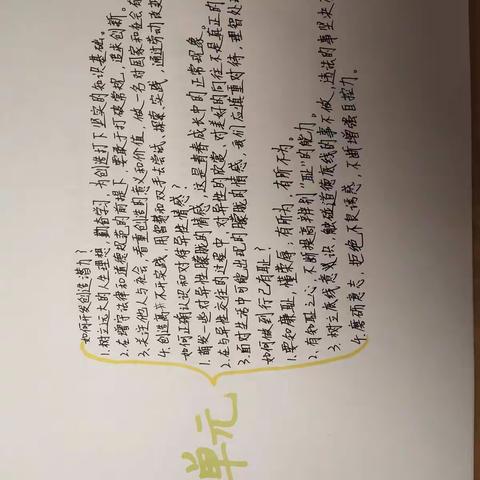 单元
如何开发创造潜力?
1.树立远大的人生理想,勤奋学习,为创造打下坚实的知识基础。
2.在遵守法律和道德改革的前提下,要敢于打破常规,追求创新。
3.关注他人与社会,看重创造的意义和价值,做一名对国家和社会有
4.创造离不开实践,用智慧和双手去尝试、探索、实践,通过劳动改变
如何正确认识和对待异性情感?
1.萌发一些对异性朦胧的情感,这是青春成长中的正常现象。
2.在与异性交往的过程中,对异性的欣赏、对美好的向往不是真正的
3.面对生活中可能出现的朦胧的情感,我们应慎重对待,理智处
如何做到行己有耻?
1.要知廉耻,懂荣辱;有所为,有所不为。
2.有知耻之心,不断提高辨别“耻”的能力。
3.树立底线意识,触碰道德底线的事不做,违法的事坚决
4.磨砺意志,拒绝不良诱惑,不断增强自控力。